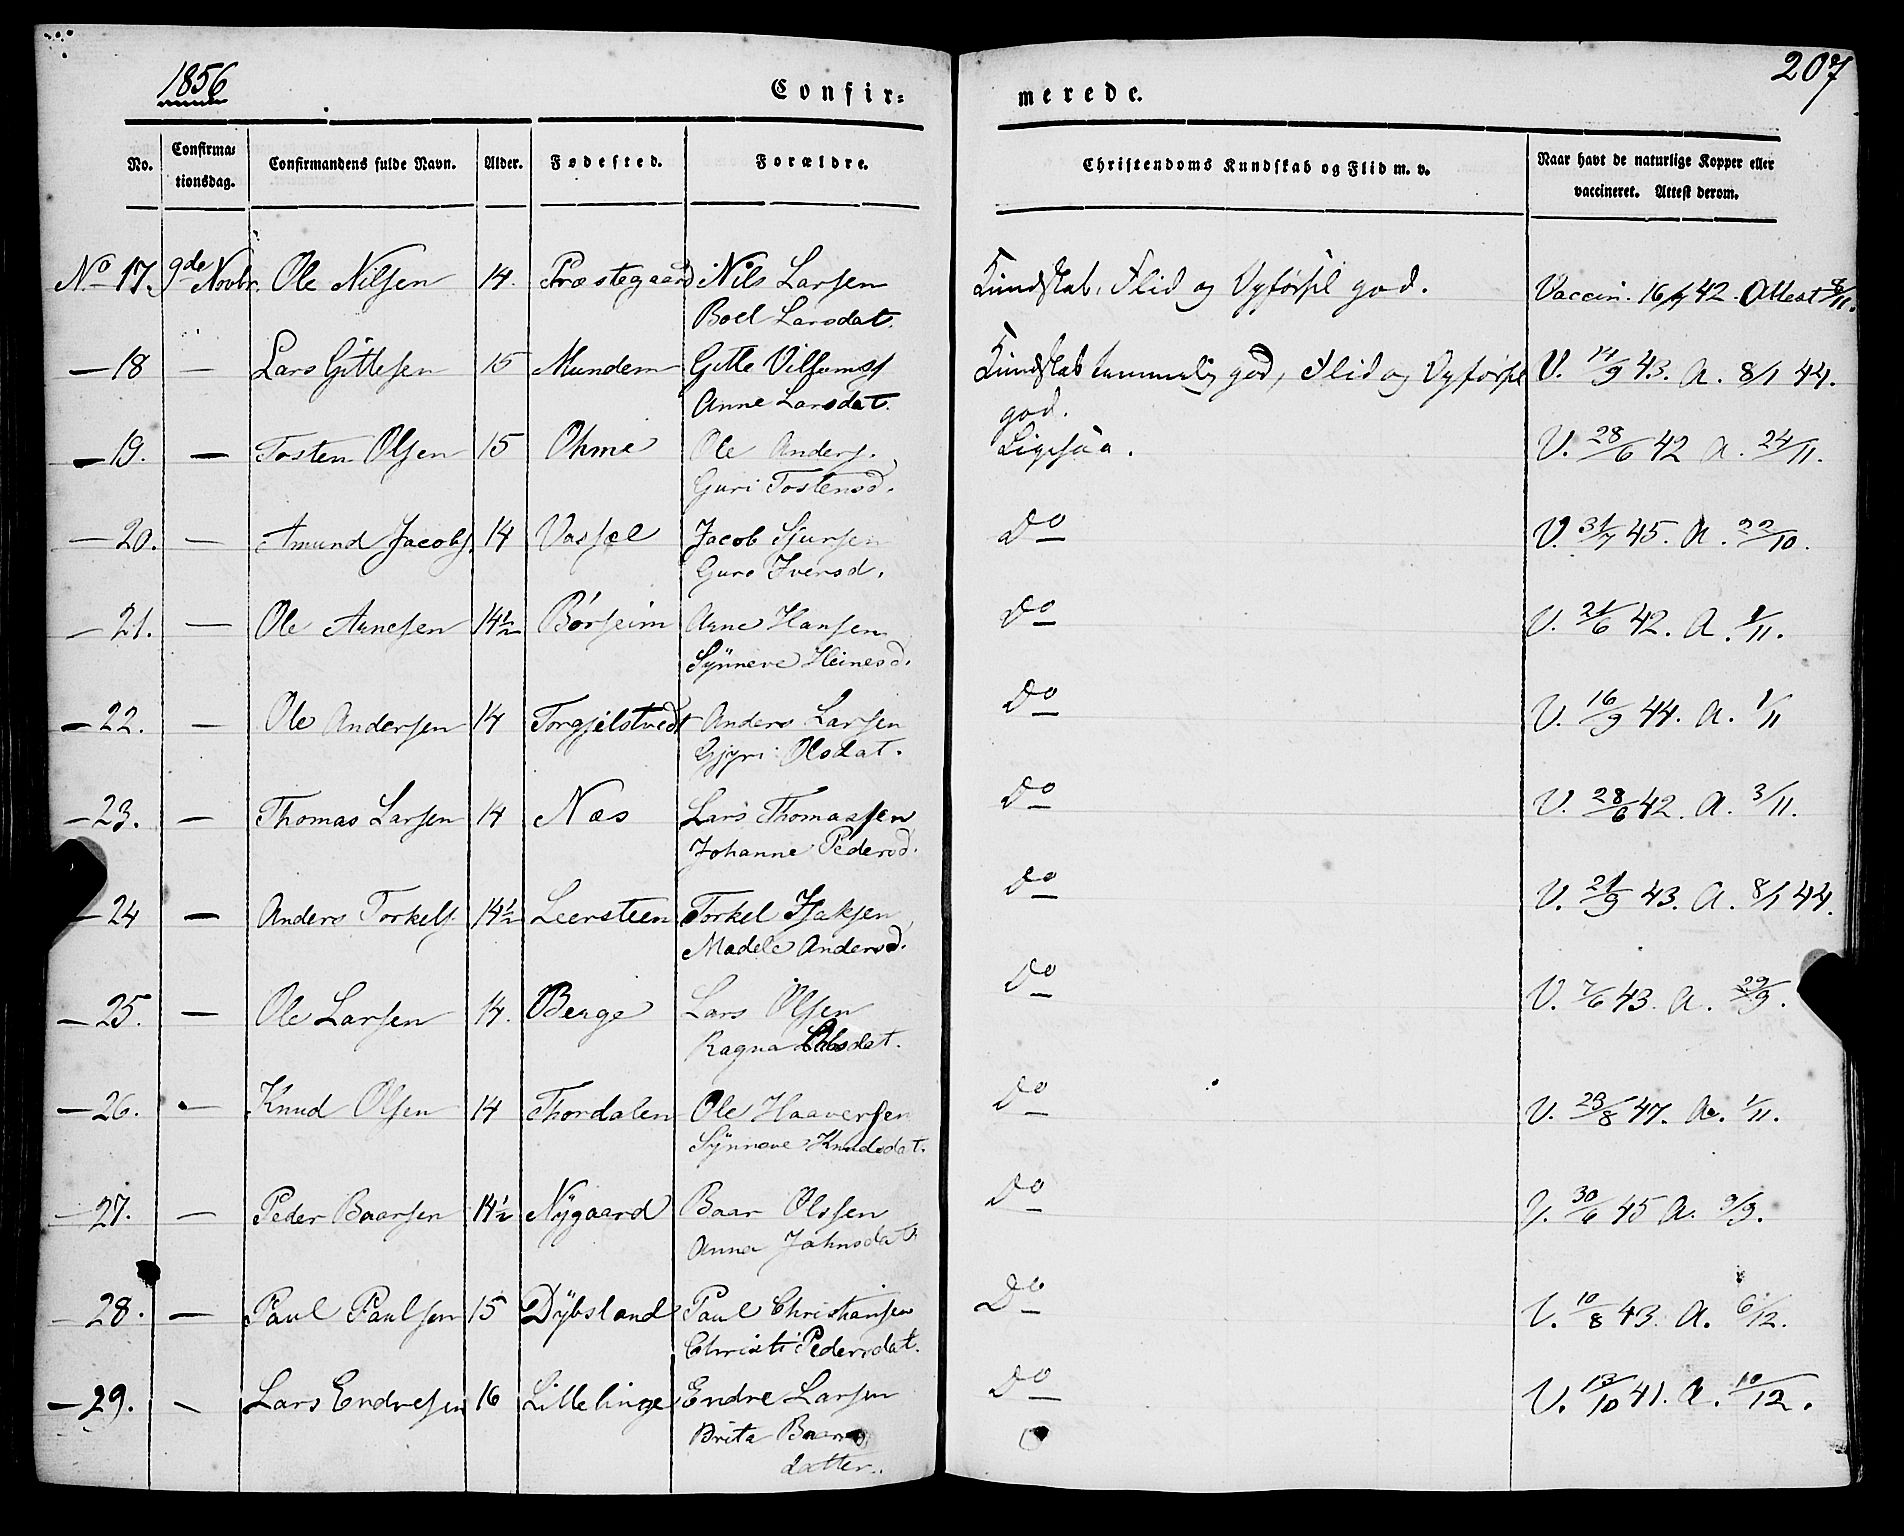 1856
Confir=
merede.
207
No.
Confirma=
tionsdag.
Confirmandens fulde Navn.
Alder.
Fødested.
Forældre.
Christendoms Kundskab og Flid m. v.
Naar havt de naturlige Kopper eller
vaccineret. Attest derom.
No 17. 9de Novbr. Ole Nilsen 14. Præstegaard Nils Larsen Kundskab, Flid og Opførsel god. Vaccin. 16/7 42. Attest 8/11.
Boel Larsdat.
— 18 — Lars Gittesen 15 Mundem Gitte Vilsoms Kundskab temmelig god, Flid og Opførsel V. 14/9 43. A. 8/1 44.
Anne Larsdat. god.
— 19. — Tosten Olsen 15 Ohme Ole Anders. Ligesaa. V. 28/6 42 A. 24/11.
Guri Tostensd.
— 20. — Amund Jacobs. 14 Vassel Jacob Sjursen Do V. 31/7 45. A. 22/10.
Guro Iversd.
— 21. — Ole Arnesen 14½ Børseim Arne Hansen Do V. 21/6 42. A. 1/11.
Synneve Heinesd.
— 22. — Ole Andersen 14 Torgjelstvedt Anders Larsen Do V. 16/9 44. A. 1/11
Gjyri Olsdat.
— 23. — Thomas Larsen 14 Næs Lars Thomassen Do V. 28/6 42. A. 3/11.
Johanne Pedersd.
— 24 — Anders Torkels. 14½ Leersteen Torkel Isaksen Do V. 21/9 43. A. 8/1 44.
Madele Andersd.
— 25. — Ole Larsen 14. Berge Lars Olsen Do V. 7/6 43. A. 29/9.
Ragna
— 26. — Knud Olsen 14 Thordalen Ole Haaversen Do V. 23/8 47. A. 1/11.
Synneve Knudsdat.
— 27. — Peder Baarsen 14½ Nygaard Baar Olssen Do V. 30/6 45 A. 9/9.
Anna Johnsdat.
— 28. — Paul Paulsen 15 Dybsland Paul Christiansen Do V. 10/8 43. A. 6/12.
Christi Pedersdat.
— 29. — Lars Endresen 16 Lillelinge Endre Larsen Do V. 13/10 41. A. 10/12.
Brita Baars
datter.